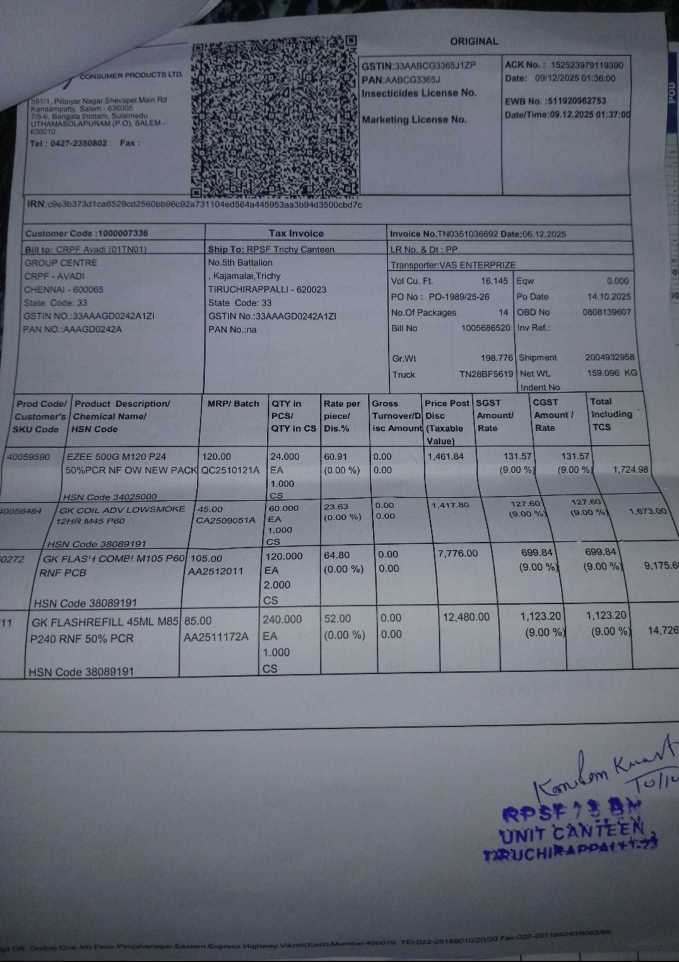 ORIGINAL
CONSUMER PRODUCTS LTD.
591/1, Pillaiyar Nagar,Shevapet Main Rd
Kandampatty, Salem - 636005
UTHAMASOLAPURAM (P.O), SALEM -
636010
Tel : 0427-2350802 Fax :
GSTIN:33AABCG3365J1ZP
PAN:AABCG3365J
Insecticides License No.
Marketing License No.
ACK No. : 152523979119300
Date: 09/12/2025 01:36:00
EWB No. :511920962753
Date/Time:09.12.2025 01:37:00
IRN:c9e3b373d1ca6529cd2560bb96c92a731104ed564a445953aa3b94d3500cbd7c
Customer Code :1000007336 Tax Invoice Invoice No.TN0351036692 Date:06.12.2025
Bill to: CRPF Avadi (01TN01) Ship To: RPSF Trichy Canteen LR No. & Dt : PP
GROUP CENTRE No.5th Battalion Transporter:VAS ENTERPRIZE
CRPF - AVADI , Kajamalai,Trichy Vol Cu. Ft. 16.145 Eqw 0.000
CHENNAI - 600065 TIRUCHIRAPPALLI - 620023 PO No : PD-1989/25-26 Po Date 14.10.2025
State Code: 33 State Code: 33 No.Of Packages 14 OBD No 0808139607
GSTIN NO.:33AAAGD0242A1ZI GSTIN NO.:33AAAGD0242A1ZI Bill No 1005686520 Inv Ref.:
PAN NO.:AAAGD0242A PAN No.:na
Gr.Wt 198.776 Shipment 2004932958
Truck TN28BF5619 Net Wt. 159.096 KG
Indent No
Prod Code/ Product Description/ MRP/ Batch QTY in Rate per Gross Price Post SGST CGST Total
Customer's Chemical Name/ PCS/ piece/ Turnover/D Disc Amount/ Amount / Including
SKU Code HSN Code QTY in CS Dis.% isc Amount (Taxable Rate Rate TCS
Value)
40059590 EZEE 500G M120 P24 120.00 24.000 60.91 0.00 1,461.84 131.57 131.57
50%PCR NF OW NEW PACK QC2510121A EA (0.00 %) 0.00 (9.00 %) (9.00 %) 1,724.98
1.000
HSN Code 34025000 CS
40056484 GK COIL ADV LOWSMOKE 45.00 60.000 23.63 0.00 1,417.80 127.60 127.60
12HR M45 P60 CA2509051A EA (0.00 %) 0.00 (9.00 %) (9.00 %) 1,673.00
1.000
HSN Code 38089191 CS
0272 GK FLASH COMBI M105 P60 105.00 120.000 64.80 0.00 7,776.00 699.84 699.84
RNF PCB AA2512011 EA (0.00 %) 0.00 (9.00 %) (9.00 %) 9,175.6
2.000
HSN Code 38089191 CS
11 GK FLASHREFILL 45ML M85 85.00 240.000 52.00 0.00 12,480.00 1,123.20 1,123.20
P240 RNF 50% PCR AA2511172A EA (0.00 %) 0.00 (9.00 %) (9.00 %) 14,726
1.000
HSN Code 38089191 CS
RPSF BN
UNIT CANTEEN
TIRUCHIRAPPALLI-23